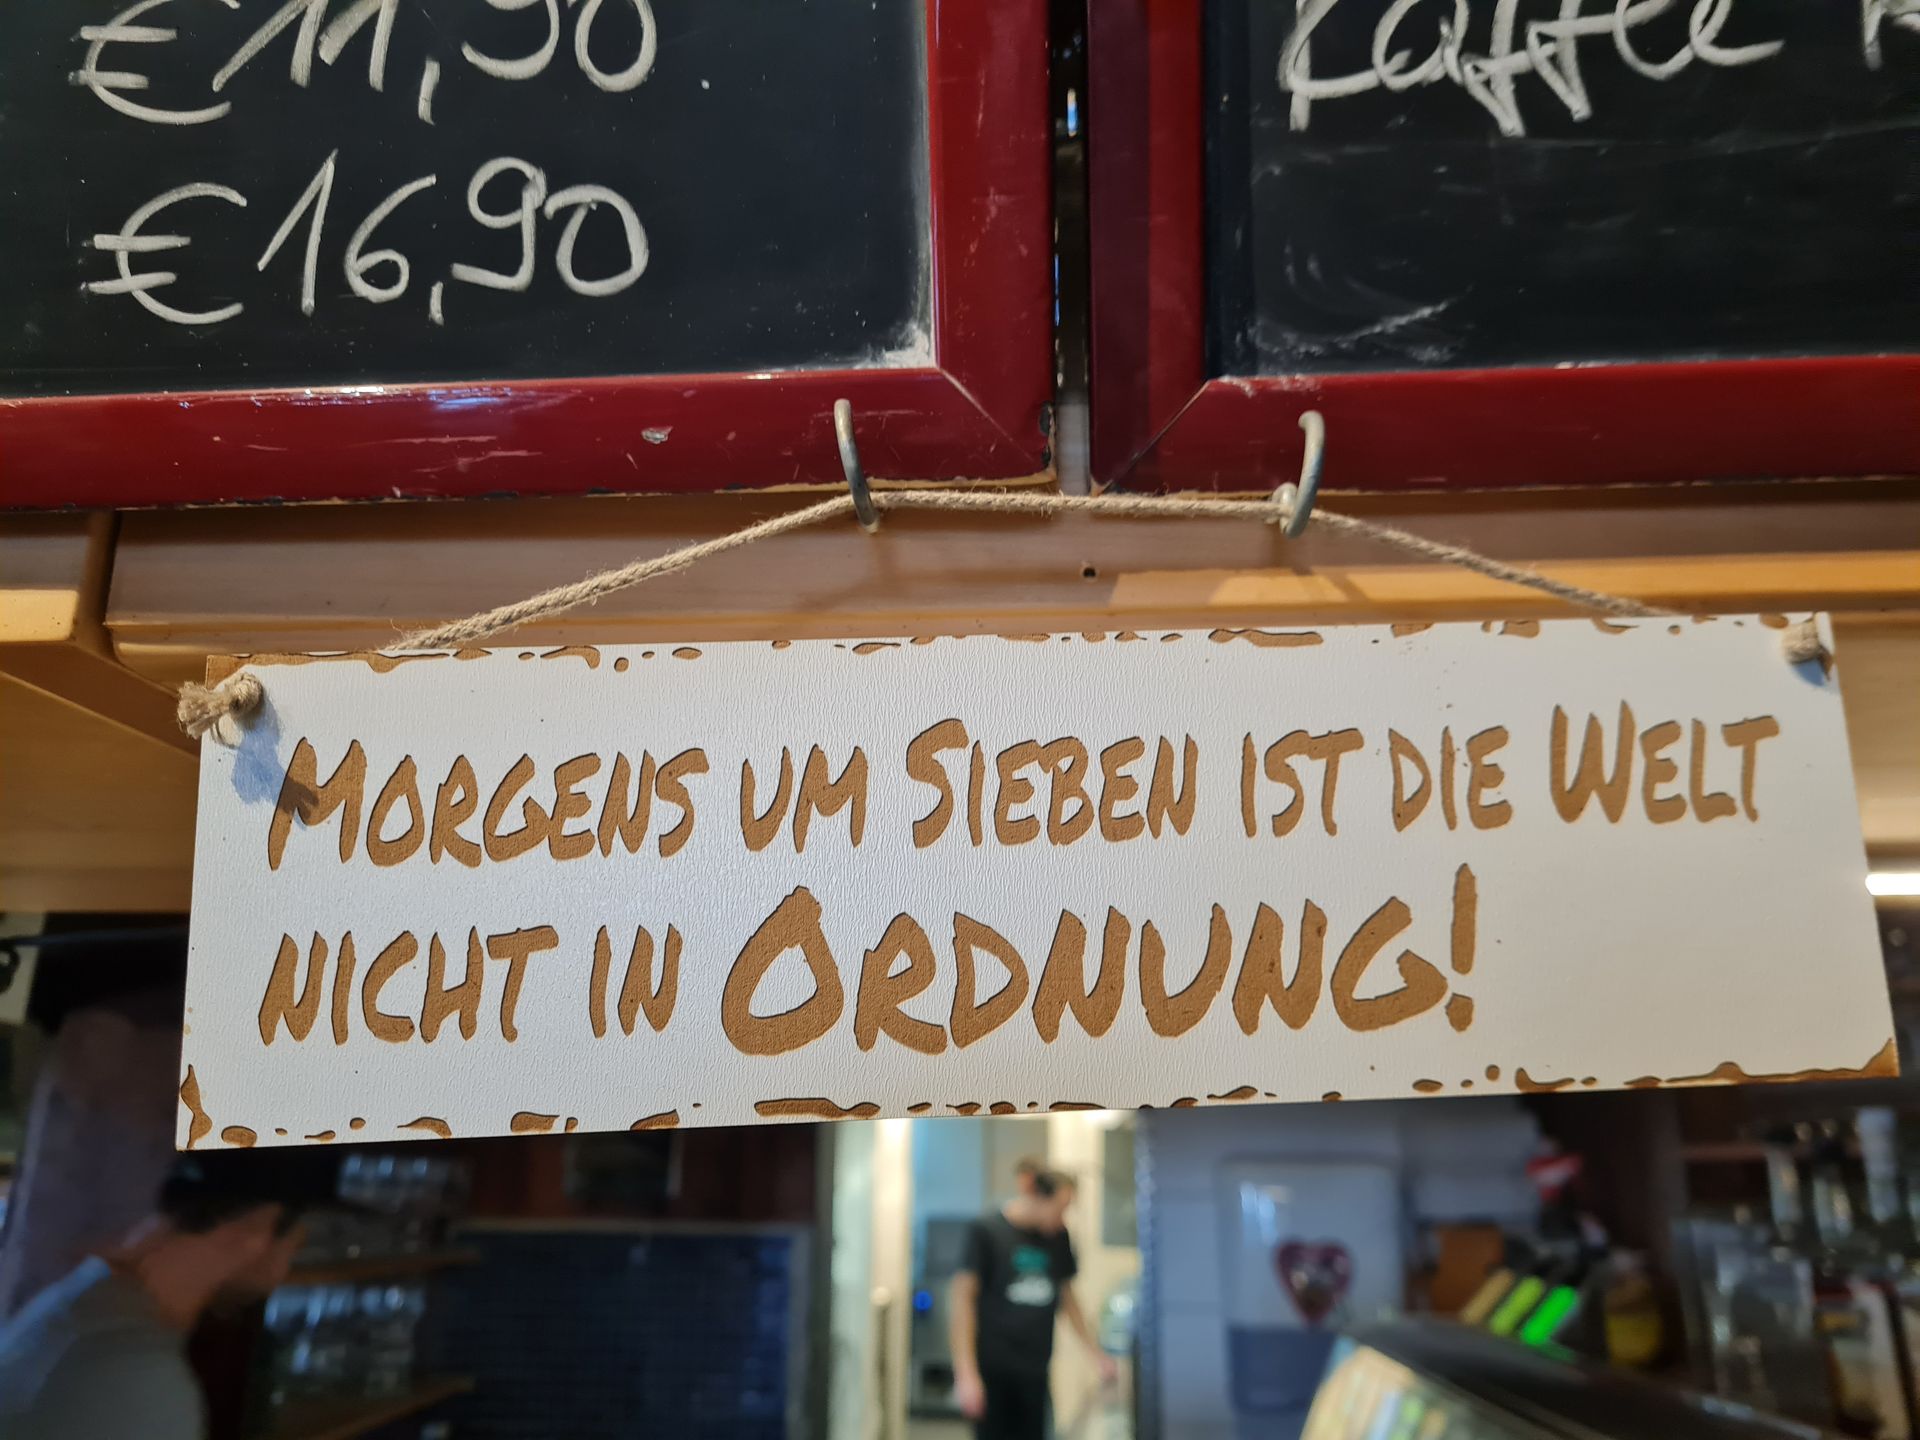 €11,90
€16,90
Kaffee
MORGENS UM SIEBEN IST DIE WELT
NICHT IN ORDNUNG!